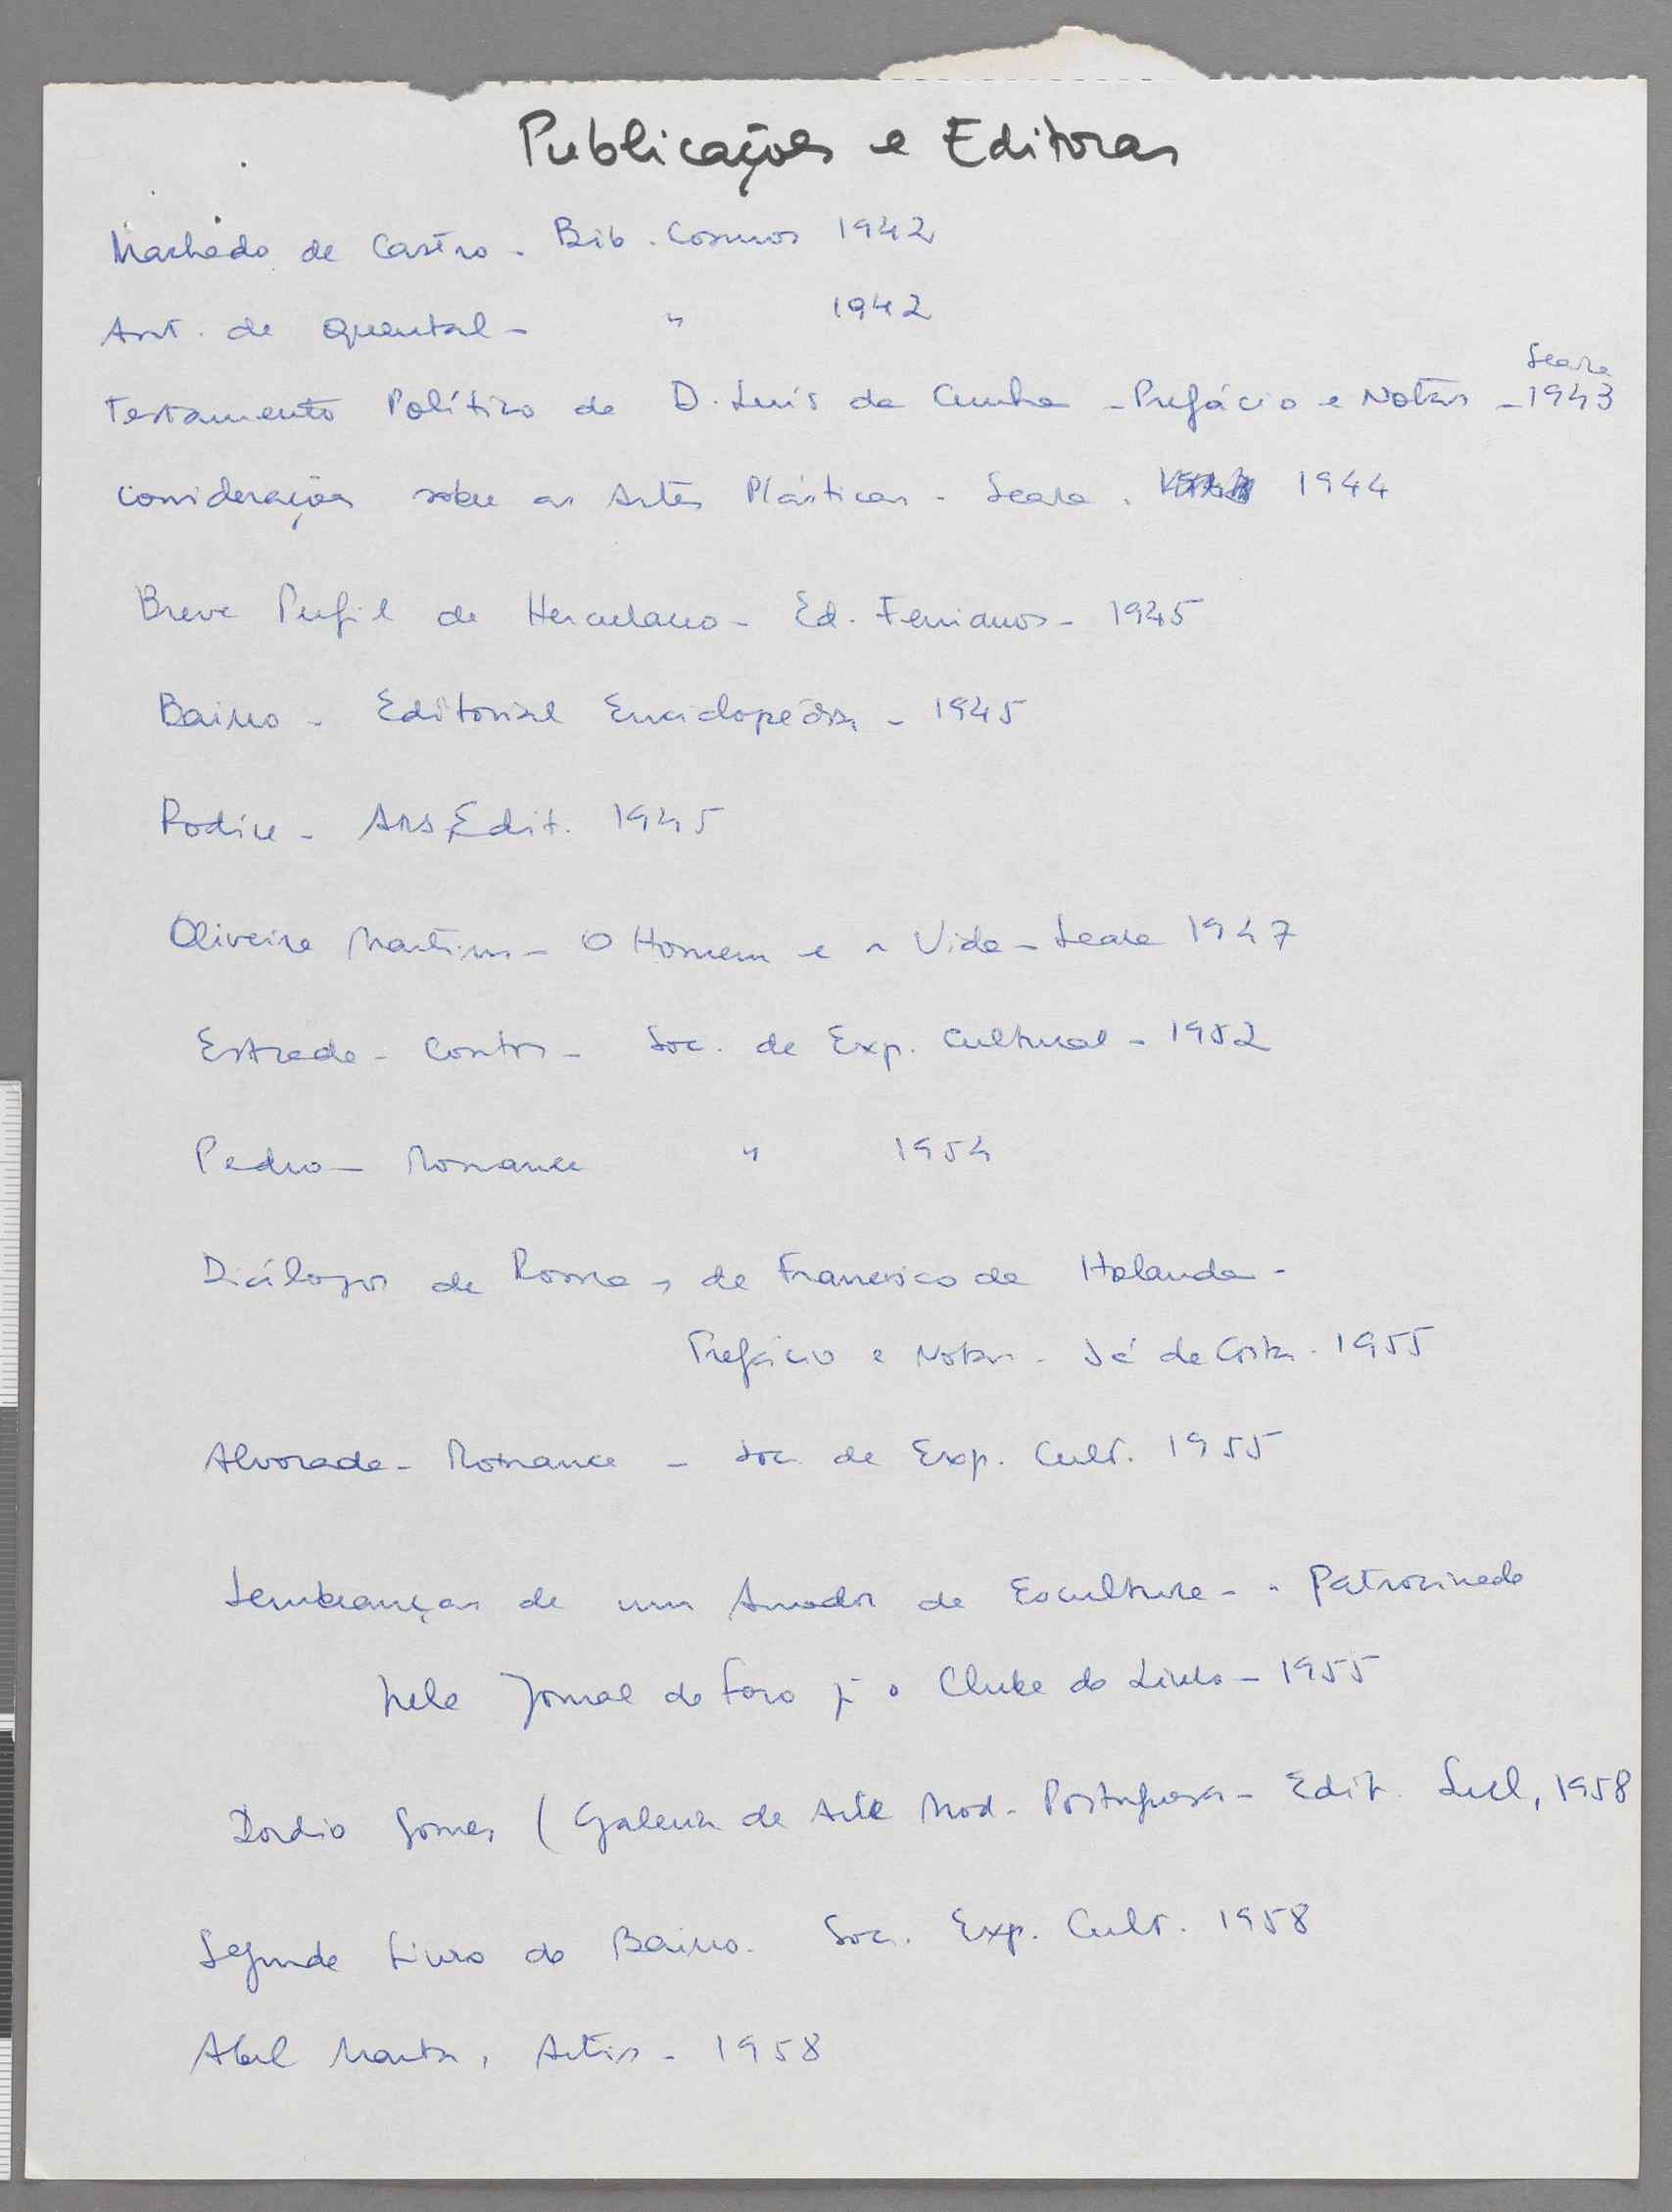 Publicações e Editoras
Machado de Castro - Bib. Cosmos 1942
Ant. de Quental - " 1942
Seara
Testamento Político de D. Luís da Cunha - Prefácio e Notas - 1943
Considerações sobre as Artes Plásticas - Seara. 1944
Breve Perfil de Herculano - Ed. Fenianos - 1945
Bairro - Editorial Enciclopédia - 1945
Rodin - Ars, Edit. 1945
Oliveira Martins - O Homem e a Vida - Seara 1947
Estrada - Contos - Soc. de Exp. Cultural - 1952
Pedro - Romance " 1954
Diálogos de Roma, de Francisco de Holanda -
Prefácio e Notas - Sá da Costa. 1955
Alvorada - Romance - Soc. de Exp. Cult. 1955
Lembranças de um Amador de Escultura - - Patrocinada
pelo Jornal do Foro p. o Clube do Livro - 1955
Dordio Gomes (Galeria de Arte Mod. Portuguesa - Edit. Sul, 1958
Segundo Livro do Bairro. Soc. Exp. Cult. 1958
Abel Manta, Artis - 1958